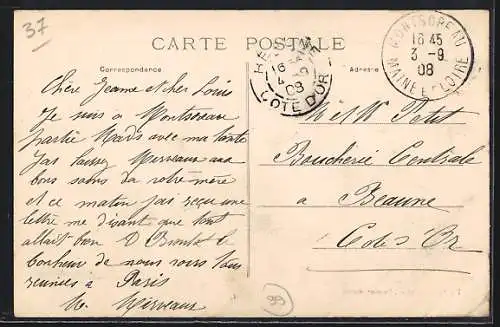 37
CARTE POSTALE
Correspondance
Adresse
MONTSOREAU
16 45
3 - 9
08
MAINE ET LOIRE
16
4
08
COTE D'OR
Chère Jeanne et cher Louis
Je suis a Montsoreau
partie Mardi avec ma tante
J'ai laissé Merveaux aux
bons soins de votre mère
et ce matin j'ai reçu une
lettre me disant que tout
allait bien
bonheur de nous voir tous
reunies a Paris
Merveaux
M et Mme Petit
Boucherie Centrale
a Beaune
Cote d'Or